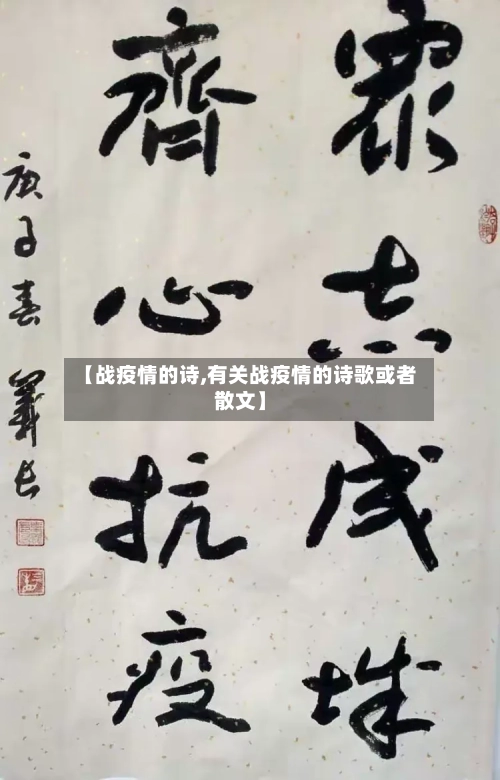 眾志成城
齊心抗疫
庚子春
【战疫情的诗,有关战疫情的诗歌或者
散文】